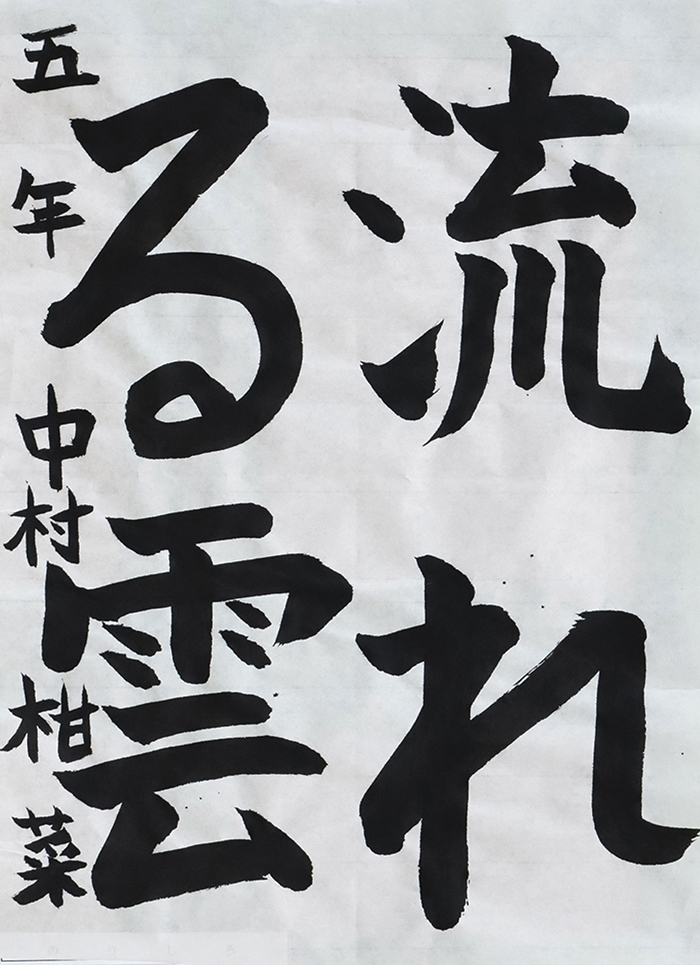 流れ
る雲
五年 中村柑菜